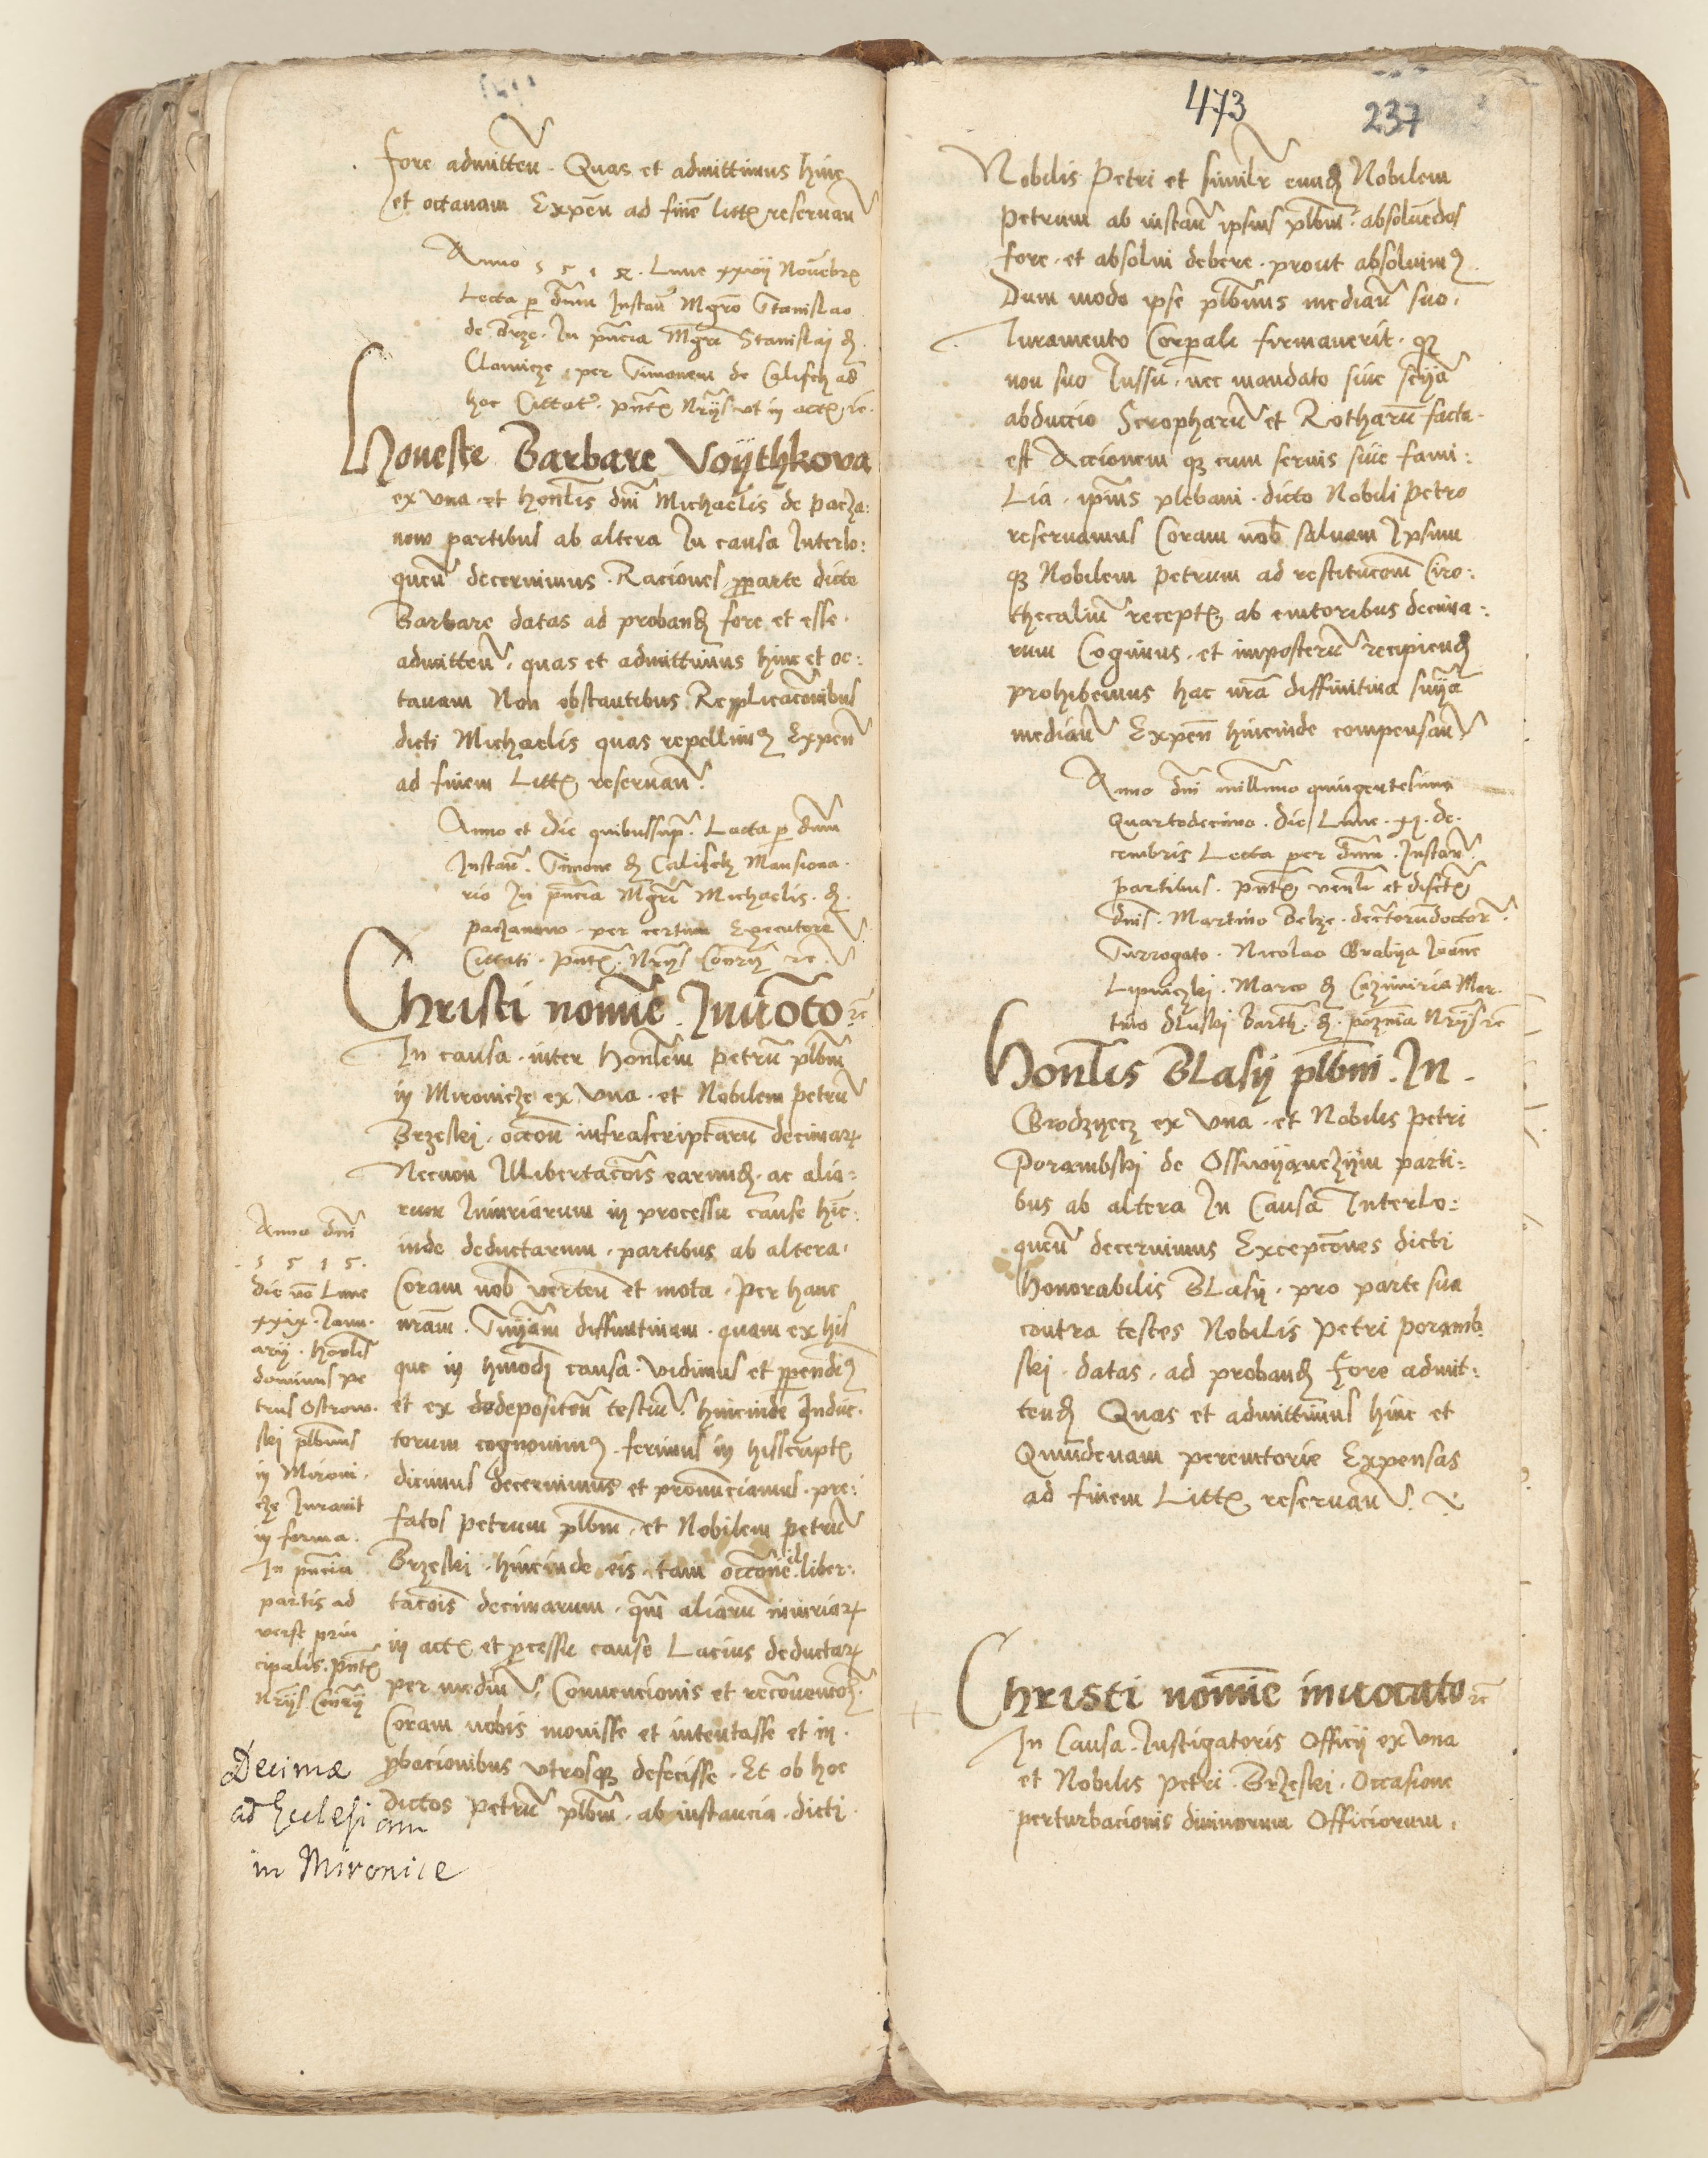 fore admitteñ. Quas et admittimus hinc
et octavam Expeñ ad finē litt reservañ
Anno 1514. Lune xxvij Novēbr
Lecta p dnm Instañ Mgro Stanislao
de Brze. In pñcia Mgri Stanislaj d
Clavicze per Simonem de Calisch ad
hoc Cittat. pñt Nrijs ut in act rc.
Honeste Barbare Voythkova
ex una et honlis dni Michaelis de pacza:
now partibus ab altera In causa Interlo:
queñ decernimus Raciones pparte dicte
Barbare datas ad proband fore et esse
admitteñ. quas et admittimus hinc et oc:
tavam Non obstantibus Replicacōnibus
dicti Michaelis quas repellim9 Expeñ
ad finem Litt reservañ.
Anno et die quibussup. Lecta p dnm
Instañ. Simone d Calisch Mansiona
rio In pñcia Mgri Michaelis d
paczanow per certum Executorē
Cittati. pñt. Nrijs Conrij rc
Christi nomīe Invōcto rc
In causa inter Honlem petrū plbm
in Mironicze ex Una et Nobilem petrū
Brzeski occōn infrascriptarū decimar
Necnon Illibertacōis earumd ac alia:
rum Iniuriarum in processu cause hīc:
inde deductarum partibus ab altera
Coram nob verteñ et mota. Per hanc
nrām. Snijām diffinitivam quam ex his
que in hmōdi causa vidimus et ppendim9
et ex dedepositoñ testiū hincinde Induc.
torum cognovim9 ferimus in hisscript
dicimus decernimus et pronūnciamus pre:
fatos petrum plbm et Nobilem petrū
Brzeski hincinde eis tam occōne illiber:
tacōis decimarum qm aliarū iniuriar
in act et pcessu cause Lacius deductar
per mediū Convencionis et recōvencōis
Coram nobis movisse et intentasse et in
pbacionibus utrosq defecisse. Et ob hoc
dictos petrū plbm ab instancia dicti
Anno dni
1515.
die vo Lune
xxix Janu
arij honlis
dominus pe
trus Ostrow.
ski plbnus
in Mironi
cze Iuravit
in forma.
In pñcia
partis ad
verse prin
cipalis pñt
Nrijs Conrij
Decimæ
ad Ecclesiam
in Mironice
473
237
Nobilis Petri et similr eund Nobilem
petrum ab instañ ipsius plbni absolvēdos
fore et absolvi debere prout absolvim9
Dum modo ipse plbnus mediañ suo
Iuramento Corpali firmaverit q
non suo Iussu nec mandato sive scīja
abduccio Scropharū et Rotharū facta
est Accionem q cum servis sive fami:
Lia ipius plebani dicto Nobili petro
reservamus Coram nob salvam Ipsum
q Nobilem petrum ad restitucōm Ciro:
thecaliū recept ab emtoribus decima:
rum Cogimus et imposterū recipiend
prohibemus hac nrā diffinitiva snijā
mediañ Expeñ hincinde compensañ
Anno dni millmo quingentesimo
quartodecimo die Lune XI de.
cembris Lecta per dnm Instañ
partibus. pñt venli et discret
dnis. Martino Belze decretorūdoctor
Surrogato. Nicolao Grabija Ioāne
Lipniczkj. Marco d Cazimiria Mar.
tino dluskj Barth d pozmia Nrijs rc
Honlis Blasij plbni In
Grodzyecz ex Una et Nobilis petri
Porambskj de Osswijanczijm parti:
bus ab altera In Causa Interlo:
queñ decernimus Excepcōnes dicti
honorabilis Blasij pro parte sua
contra testes Nobilis petri poramb
skj datas ad proband fore admit:
tend Quas et admittimus hinc et
Quindenam peremtorie Expensas
ad finem Litt reservañ
Christi nomīe invocato rc
In Causa Instigatoris Officij ex Una
et Nobilis petri Brzeski Occasione
perturbacionis divinorum Officiorum